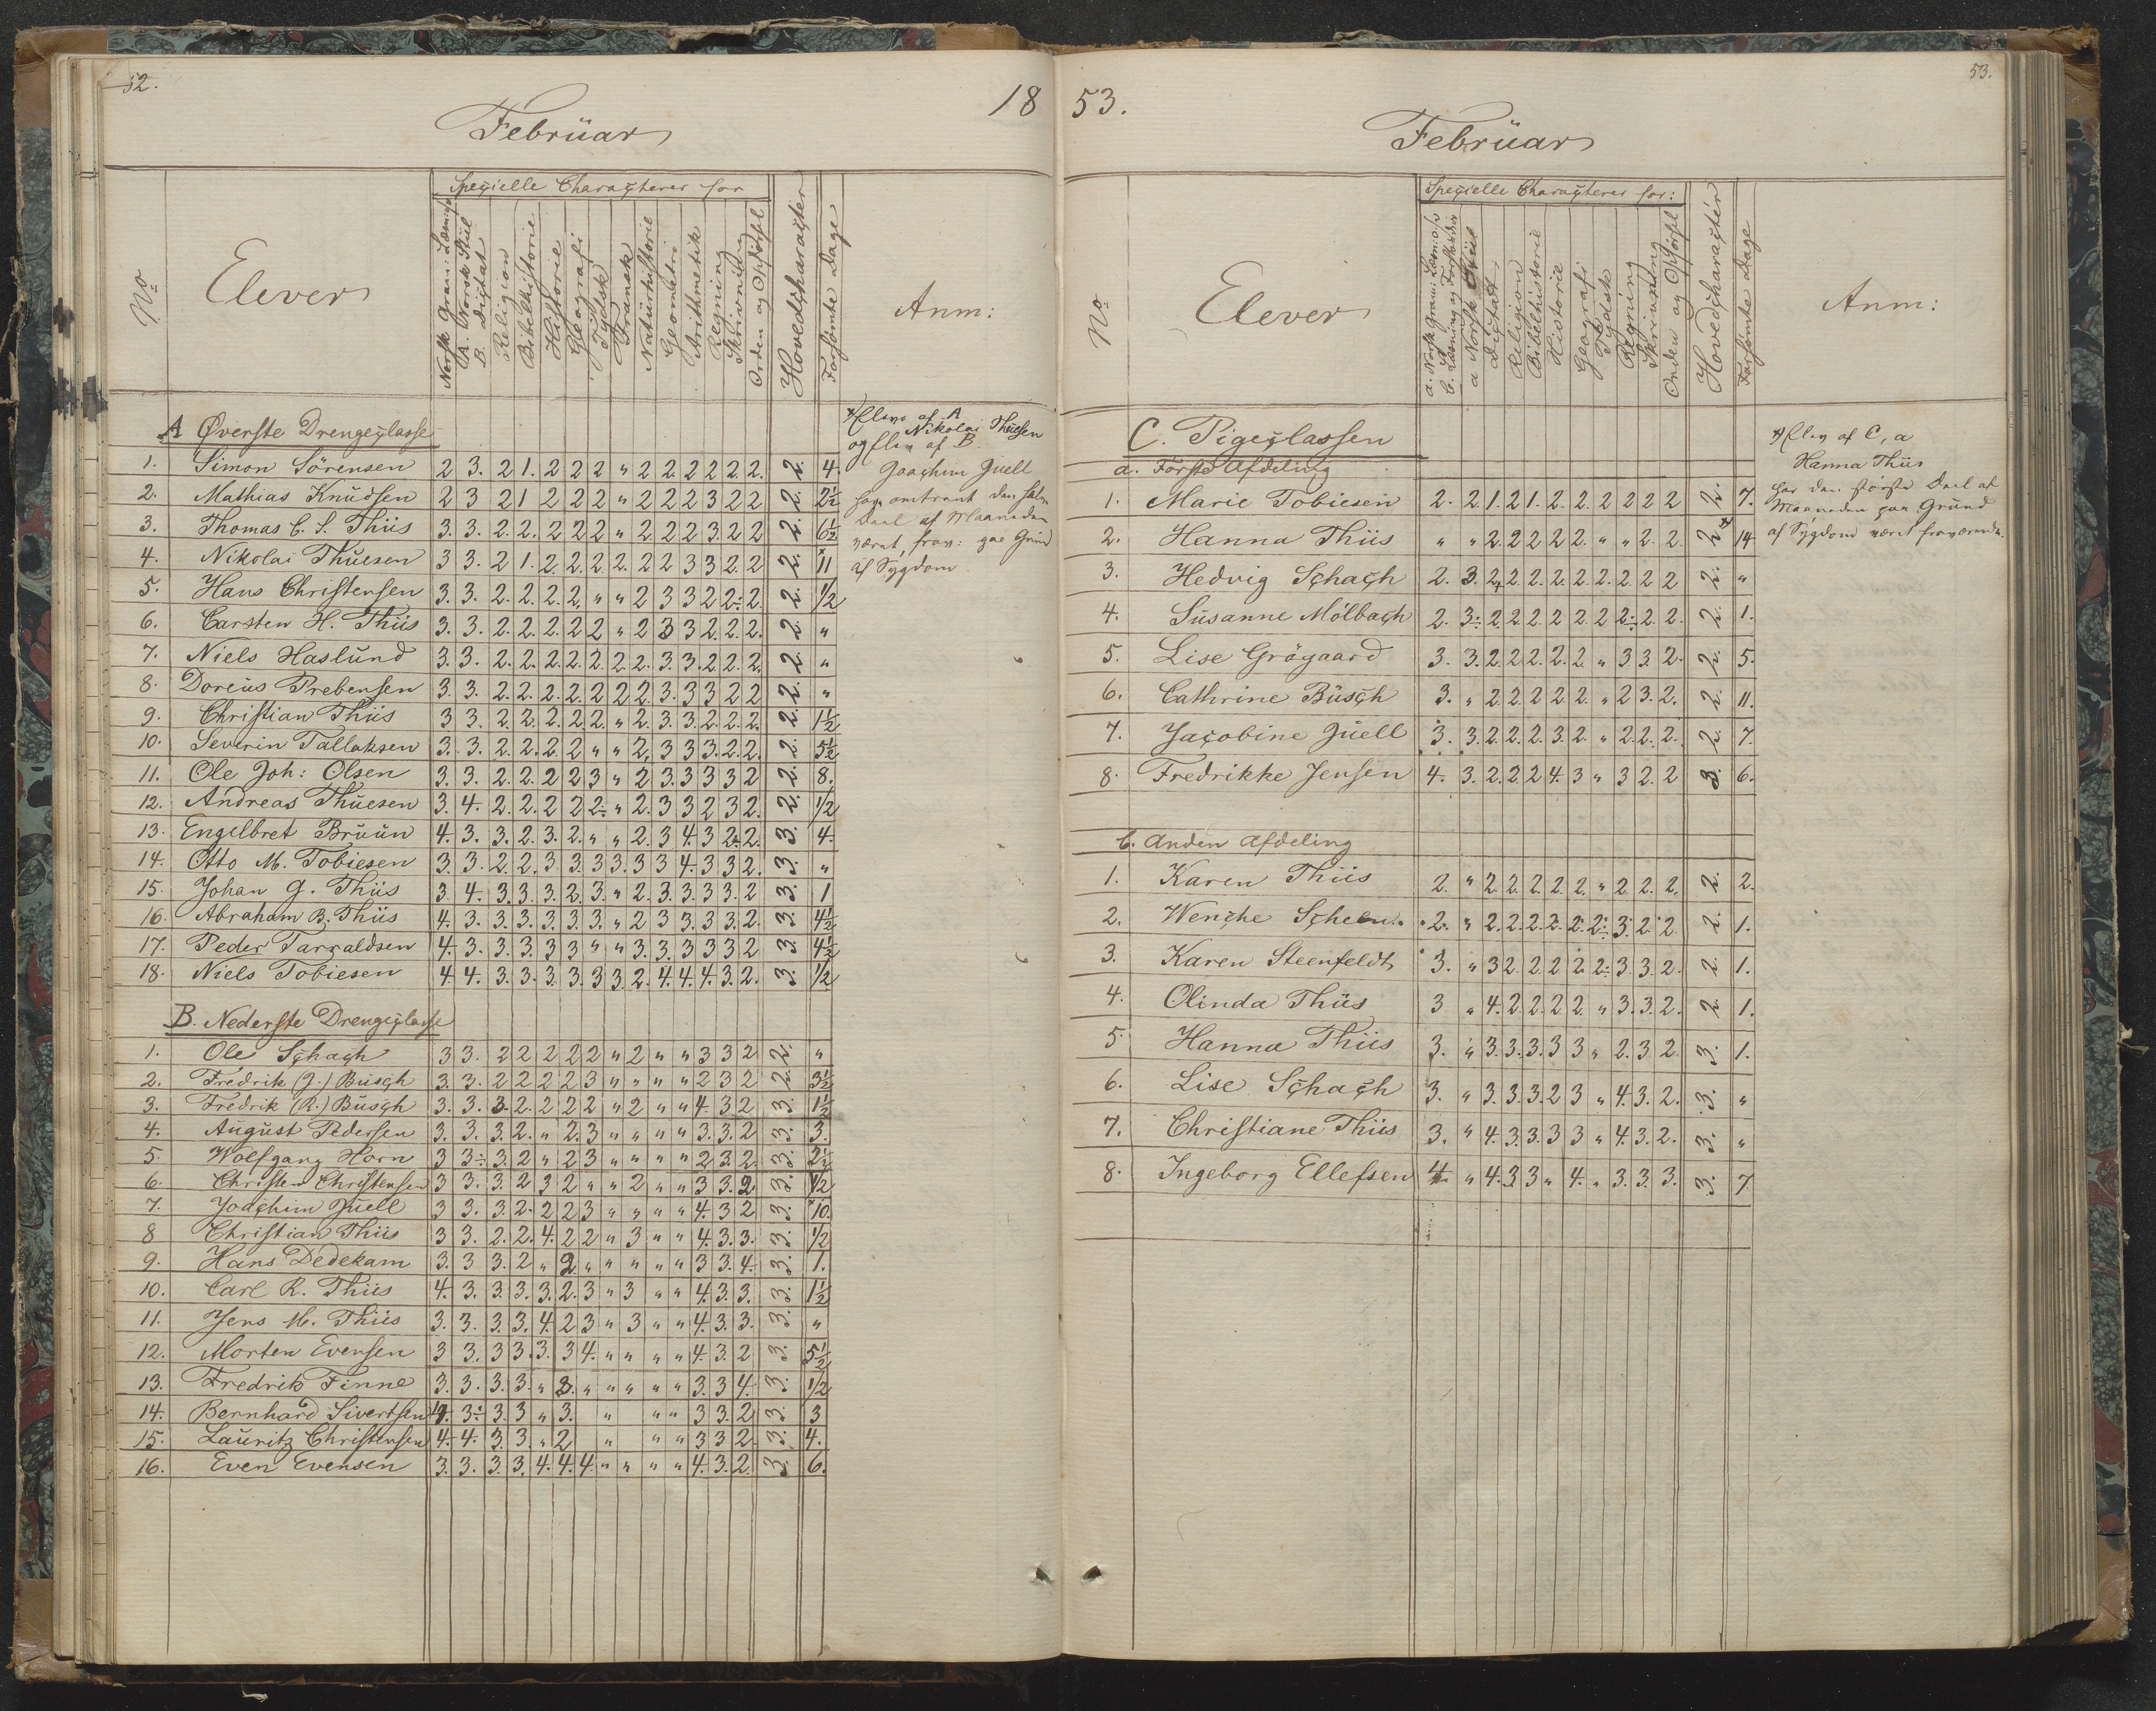 52.
18
Februar
No
Elever
Specielle Characterer for
Norsk Gram: Læsning
A. Norsk Stiil
B. Dictat
Religion
Bibelhistorie
Historie
Geografi
Tydsk
Fransk
Naturhistorie
Geometri
Arithmetik
Regning
Skrivning
Orden og Opførsel
Hovedcharacter
Forsømte Dage
Anm:
A Øverste Drengeclasse
1. Simon Sörensen 2 3. 2 1. 2 2 2 " 2 2. 2 2 2 2. 2. 4.
2. Mathias Knudsen 2 3 2 1 2 2 2 " 2 2 2 3 2 2 2. 2½
3. Thomas C. S. Thiis 3. 3. 2. 2. 2 2 2 " 2. 2 2 3. 2 2 2. 6½
4. Nikolai Thuesen 3 3. 2 1. 2. 2. 2. 2. 2 2 3 3 2. 2 2. 11
5. Hans Christensen 3. 3. 2. 2. 2. 2. " " 2 3 3 2 2÷ 2. 2. 1/2
6. Carsten H. Thiis 3. 3. 2. 2. 2. 2 2 " 2 3 3 2. 2. 2. 2. "
7. Niels Haslund 3. 3. 2. 2. 2. 2. 2. 2. 2. 3. 3. 2. 2. 2. 2. "
8. Doreus Prebensen 3. 3. 2. 2. 2. 2. 2 2 2. 3. 3 3 2 2 2. "
9. Christian Thiis 3 3. 2. 2. 2. 2. 2. " 2. 3. 3. 2. 2. 2. 2. 1½
10. Severin Tallaksen 3. 3. 2. 2. 2. 2 " " 2, 3 3 3. 2. 2. 2. 5½
11. Ole Joh: Olsen 3. 3. 2. 2. 2 2 3 " 2 3. 3 3 3 2 2. 8.
12. Andreas Thuesen 3. 4. 2. 2. 2 2 2÷ " 2. 3 3 2 3 2. 2. 1/2
13. Engelbret Bruun 4. 3. 3. 2. 3. 2. " " 2. 3 4. 3 2. 2. 3. 4.
14. Otto M. Tobiesen 3. 3. 2. 2. 3 3. 3 3. 3 3 4. 3 3 2. 3. "
15. Johan G. Thiis 3 4. 3. 3. 3. 2. 3. " 2. 3. 3. 3 3. 2 3. 1
16. Abraham B. Thiis 4. 3. 3. 3. 3. 3. 3. " 2 3 3. 3. 3. 2. 3. 4½
17. Peder Tarraldsen 4. 3. 3. 3. 3 3 " " 3. 3. 3 3 3 2 3. 4½
18. Niels Tobiesen 4 4. 3. 3. 3. 3. 3 3. 2. 4. 4. 4. 3. 2. 3. 1/2
B. Nederste Drengeclasse
1. Ole Schach 3 3. 2 2 2 2 2 " 2 " " 3 3 2 2. "
2. Fredrik (J.) Busch 3. 3. 2 2 2 2 3 " " " " 2 3 2 2. 3½
3. Fredrik (R.) Busch 3. 3. 3. 2. 2 2 2 " 2 " " 4. 3 2 3. 1½
4. August Pedersen 3. 3. 3. 2. " 2. 3 " " " " 3. 3. 2 3. 3.
5. Wolfgang Horn 3 3÷ 3. 2 " 2 3 " " " " 2 3. 2. 3. 2½
6. Christen Christensen 3 3. 3. 2 3 2 " " 2 " " 3 3. 2 3. 1/2
7. Joachim Juell 3 3. 3. 2. 2 2 3 " " " " 4. 3 2 3. 10.
8 Christian Thiis 3 3. 2. 2. 4. 2 2 " 3 " " 4. 3. 3. 3. 1/2
9. Hans Dedekam 3. 3 3. 2 " 2 " " " " " 3 3. 4. 3. 1.
10. Carl R. Thiis 4. 3. 3. 3. 3. 2. 3 " 3 " " 4. 3. 3. 3. 1½
11. Jens M. Thiis 3. 3. 3. 3. 4. 2 3 " 3 " " 4. 3. 3. 3. "
12. Morten Evensen 3 3. 3 3. 3. 3 4. " " " " 4. 3. 2 3. 5½
13. Fredrik Finne 3. 3. 3. 3. " 3. " " " " " 3. 3 4. 3. 1/2
14. Bernhard Sivertsen 4. 3÷ 3. 3 " 3. " " " 3 3. 2 3. 3
15. Lauritz Christensen 4. 4. 3. 3. " 2 " " " 3 3 2. 3. 4.
16. Even Evensen 3. 3. 3. 3. 4. 4. 4. " " " " 4. 3. 2. 3. 6.
*) Elev af A
Nikolai Thuesen
og Elev af B.
Joachim Juell
har omtrent den halve
Deel af Maaneden
været frav: paa Grund
af Sygdom
53.
53.
Februar
No
Elever
Specielle Characterer for:
a. Norsk Gram: Læsn: o/v
b. Læsning og Forstandsøv
a Norsk Stiil
Dictat
Religion
Bibelhistorie
Historie
Geografi
Tydsk
Regning
Skrivning
Orden og Opförsel
Hovedcharactér
Forsømte Dage
Anm:
C. Pigeclassen
a. Første Afdeling
1. Marie Tobiesen 2. 2. 1. 2 1. 2. 2. 2 2 2 2 2. 7.
2. Hanna Thiis " " 2. 2 2 2 2. " " 2. 2. 2 14
3. Hedvig Schach 2. 3. 2 2. 2. 2. 2. 2. 2 2 2 2. "
4. Susanne Mölbach 2. 3÷ 2. 2 2 2 2 2 2÷ 2. 2. 2. 1.
5. Lise Grögaard 3. 3. 2. 2 2. 2. 2. " 3 3. 2. 2. 5.
6. Cathrine Busch 3. " 2 2. 2 2. 2. " 2 3. 2. 2. 11.
7. Jacobine Juell 3. 3. 2. 2. 2. 3. 2. " 2. 2. 2. 2. 7.
8. Fredrikke Jensen 4. 3. 2. 2. 2 4. 3 " 3 2. 2 3. 6.
b. Anden Afdeling
1. Karen Thiis 2. " 2. 2. 2. 2. 2. " 2 2. 2, 2. 2.
2. Wenche Scheen 2. " 2. 2. 2. 2. 2. 2÷ 3. 2. 2 2. 1.
3. Karen Steenfeldt 3. " 3 2. 2. 2 2. 2÷ 3. 3. 2. 2. 1.
4. Olinda Thiis 3 " 4. 2. 2. 2 2. " 3. 3. 2. 2. 1.
5. Hanna Thiis 3. " 3. 3. 3. 3 3 " 2. 3 2. 3. 1.
6. Lise Schach 3. " 3. 3. 3. 2 3 " 4. 3. 2. 3. "
7. Christiane Thiis 3. " 4. 3. 3. 3 3 " 4. 3. 2. 3. "
8. Ingeborg Ellefsen 4. " 4. 3. 3 " 4. " 3. 3. 3. 3. 7.
*) Elev af C, a
Hanna Thiis
har den største Deel af
Maaneden paa Grund
af Sygdom været fraværende.